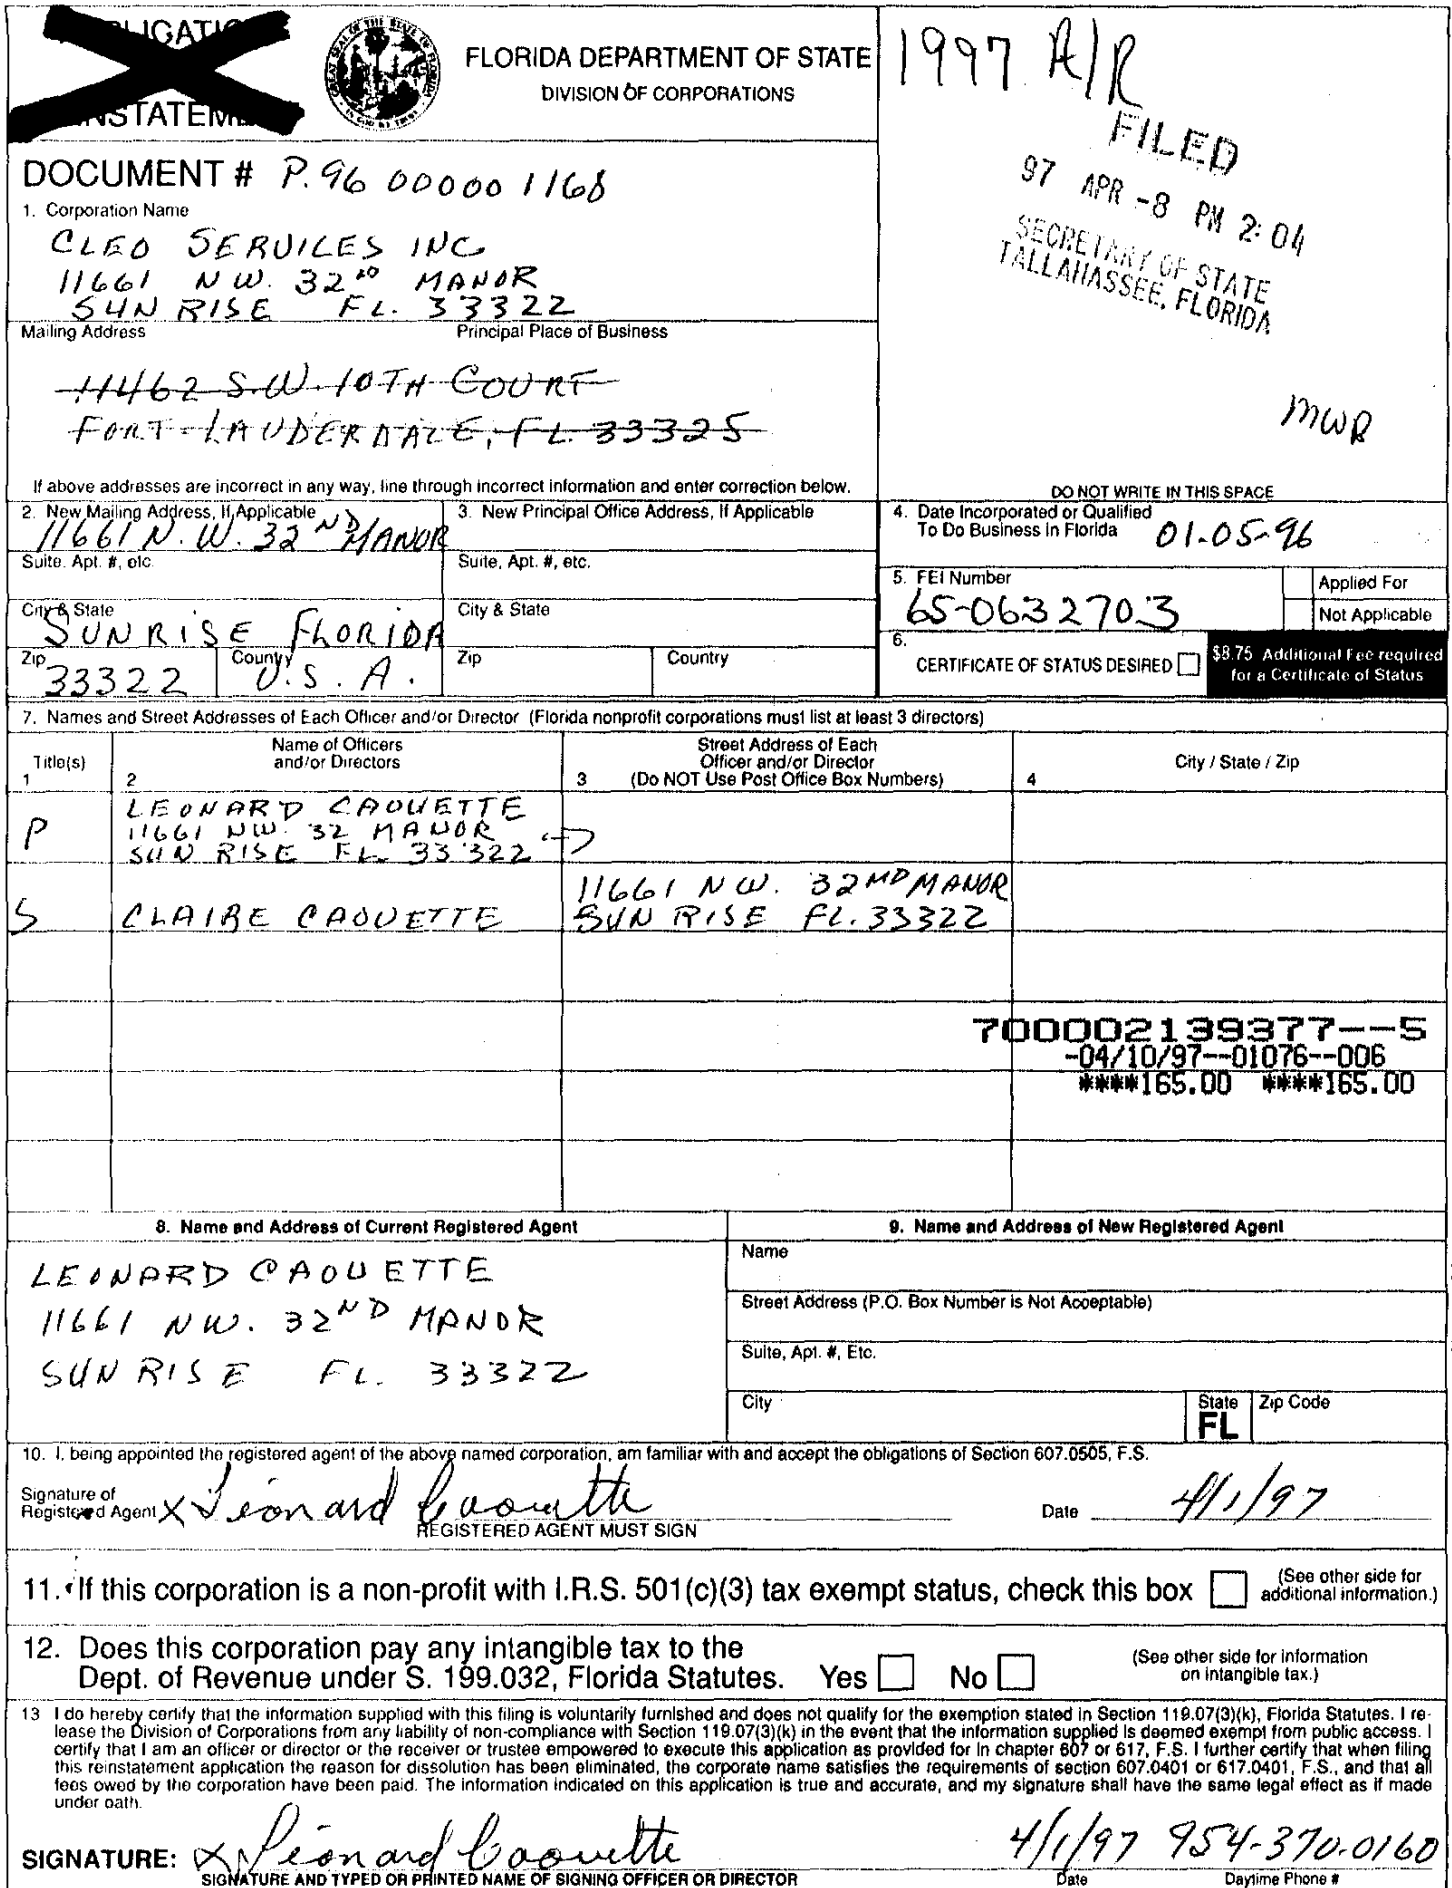 FLORIDA DEPARTMENT OF STATE
DIVISION OF CORPORATIONS
1997 A/R
FILED
97 APR -8 PM 2:04
SECRETARY OF STATE
TALLAHASSEE, FLORIDA
MWB
DO NOT WRITE IN THIS SPACE
DOCUMENT # P.96 00000 1168
1. Corporation Name
CLEO SERVICES INC
11661 NW. 32ND MANOR
SUN RISE FL. 33322
Mailing Address Principal Place of Business
11462 S.W. 10TH COURT
FORT-LAUDERDALE, FL 33325
If above addresses are incorrect in any way, line through incorrect information and enter correction below.
2. New Mailing Address, If Applicable
11661 N. W. 32ND MANOR
Suite. Apt. #, etc.
City & State
SUNRISE FLORIDA
Zip
33322
Country
U.S.A.
3. New Principal Office Address, If Applicable
Suite, Apt. #, etc.
City & State
Zip
Country
4. Date Incorporated or Qualified
To Do Business in Florida 01-05-96
5. FEI Number
65-0632703
Applied For
Not Applicable
6.
CERTIFICATE OF STATUS DESIRED
$8.75 Additional Fee required
for a Certificate of Status
7. Names and Street Addresses of Each Officer and/or Director (Florida nonprofit corporations must list at least 3 directors)
Title(s)
1
Name of Officers
and/or Directors
2
Street Address of Each
Officer and/or Director
3 (Do NOT Use Post Office Box Numbers)
City / State / Zip
4
P
LEONARD CAOUETTE
11661 NW. 32 MANOR
SUN RISE FL. 33322
S CLAIRE CAOUETTE
11661 NW. 32ND MANOR
SUN RISE FL. 33322
700002139377--5
-04/10/97--01076--006
****165.00 ****165.00
8. Name and Address of Current Registered Agent
LEONARD CAOUETTE
11661 NW. 32ND MANOR
SUN RISE FL. 33322
9. Name and Address of New Registered Agent
Name
Street Address (P.O. Box Number is Not Acceptable)
Suite, Apt. #, Etc.
City
State
FL
Zip Code
10. I, being appointed the registered agent of the above named corporation, am familiar with and accept the obligations of Section 607.0505, F.S.
Signature of
Registered Agent X Léonard Caouette
REGISTERED AGENT MUST SIGN
Date 4/1/97
11. If this corporation is a non-profit with I.R.S. 501(c)(3) tax exempt status, check this box
(See other side for
additional information.)
12. Does this corporation pay any intangible tax to the
Dept. of Revenue under S. 199.032, Florida Statutes. Yes No
(See other side for information
on intangible tax.)
13 I do hereby certify that the information supplied with this filing is voluntarily furnished and does not qualify for the exemption stated in Section 119.07(3)(k), Florida Statutes. I re-
lease the Division of Corporations from any liability of non-compliance with Section 119.07(3)(k) in the event that the information supplied is deemed exempt from public access. I
certify that I am an officer or director or the receiver or trustee empowered to execute this application as provided for in chapter 607 or 617, F.S. I further certify that when filing
this reinstatement application the reason for dissolution has been eliminated, the corporate name satisfies the requirements of section 607.0401 or 617.0401, F.S., and that all
fees owed by the corporation have been paid. The information indicated on this application is true and accurate, and my signature shall have the same legal effect as if made
under oath.
SIGNATURE: X Léonard Caouette 4/1/97 954-370-0160
SIGNATURE AND TYPED OR PRINTED NAME OF SIGNING OFFICER OR DIRECTOR Date Daytime Phone #